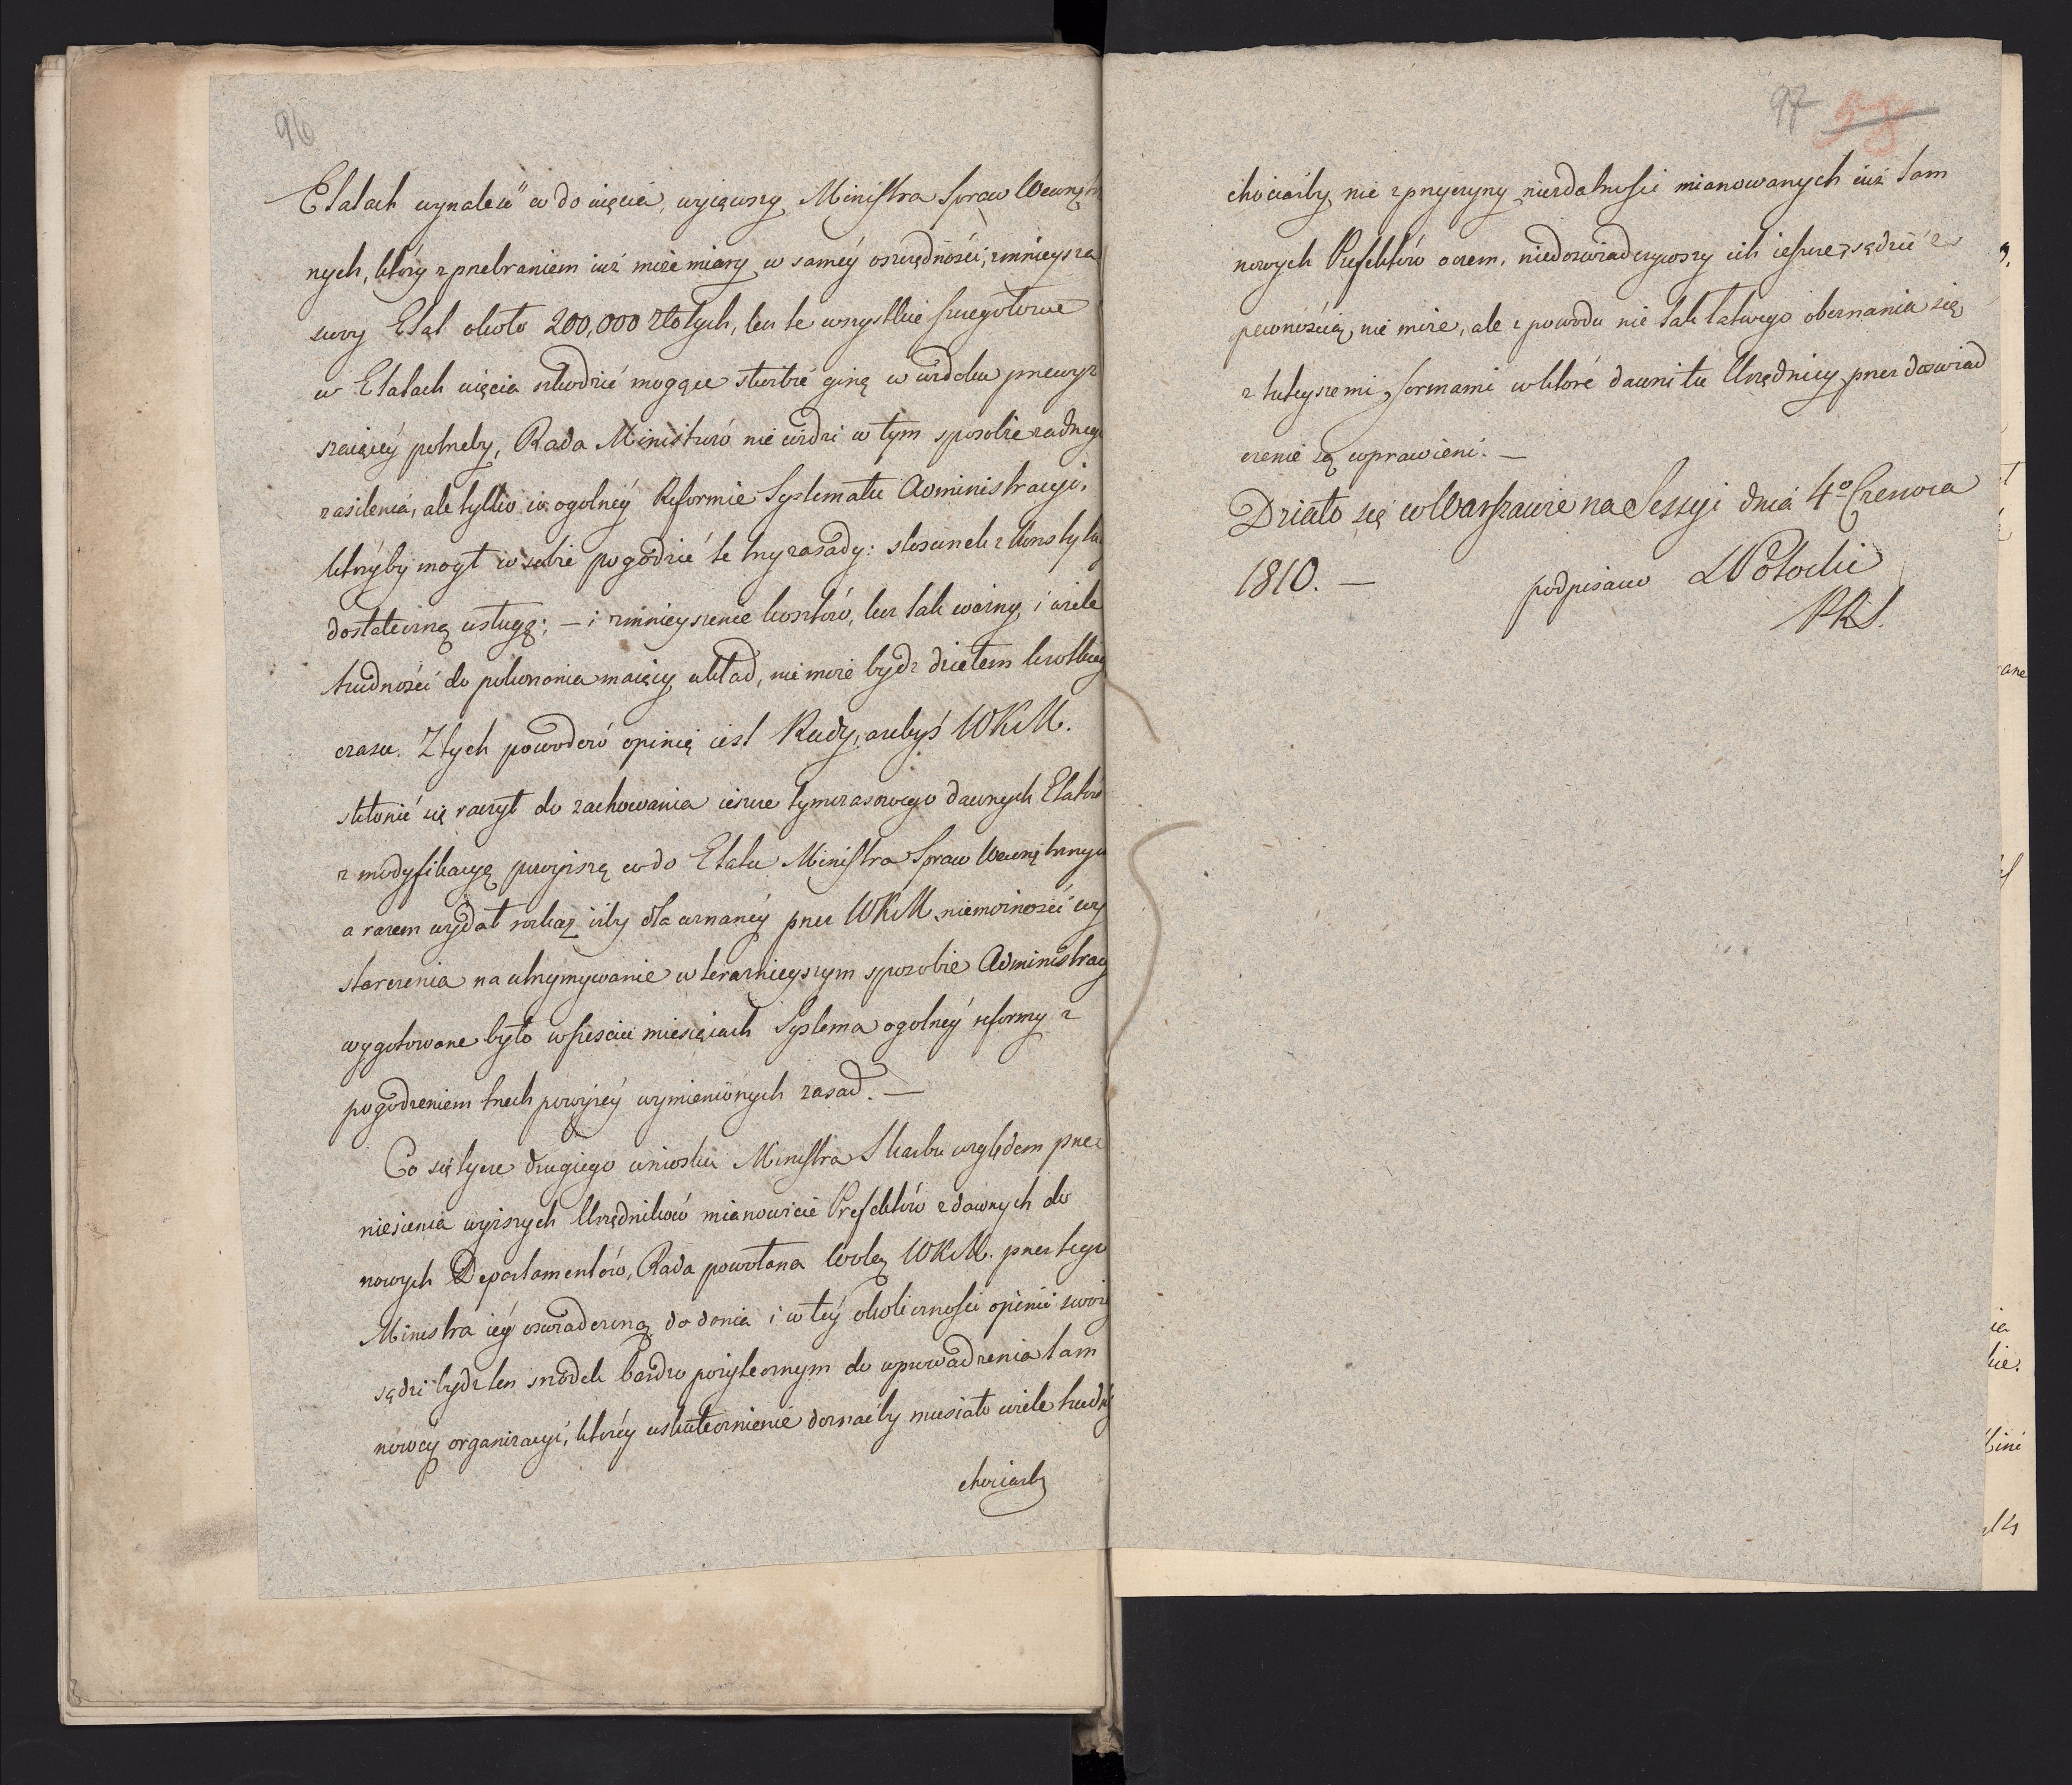 96
Etatach wynaleść co do cięcia, wyiąwszy Ministra Spraw Wewnętrz
nych, który z przebraniem iuż może miary w saméy oszczędności, zmnieysza
swoy Etat około 200,000 Złotych, lecz te wszystkie szczegołowe
w Etatach cięcia szkodzić mogące służbie giną w widoku przewyż
szaiącéy potrzeby, Rada Ministrów nie widzi w tym sposobie żadnego
zasilenia, ale tylko w ogolnéy Reformie Systematu Administracyi,
któryby mogł w sobie pogodzić te trzy zasady: stosunek z Konstytu
dostateczną usługę; — i zmnieyszenie kosztów, lecz tak ważny i wiele
trudności do pokonania maiący układ, nie może bydź dziełem krotkiego
czasu. Z tych powodów opinią iest Rady, ażebyś WKM.
skłonić się raczył do zachowania ieszcze tymczasowego dawnych Etatów
z modyfikacyą powyższą co do Etatu Ministra Spraw Wewnętrznych
a razem wydał rozkaz iżby dla uznanéy przez WKM. niemożności wy
starczenia na utrzymywanie w teraźnieyszym sposobie Administracyi
wygotowane było w sześciu miesiącach Systema ogolnéy reformy z
pogodzeniem trzech powyżéy wymienionych zasad. —
Co się tycze drugiego wniosku Ministra Skarbu względem prze
niesienia wyższych Urzędników mianowicie Prefektów z dawnych do
nowych Departamentów, Rada powołana Wolą WKM. przez tegoż
Ministra iéy oświadczoną do dania i w téy okoliczności opinii swoiéy
sądzi bydź ten środek bardzo pożytecznym do wprowadzenia tam
nowéy organizacyi, któréy uskutecznienie doznaćby musiało wiele trudności
chociażby
97 58
chociażby nie z przyczyny niezdatności mianowanych iuż tam
nowych Prefektów o czem, niedoświadczywszy ich ieszcze, sądzić z
pewnością nie może, ale z powodu nie tak łatwego obeznania się
z tuteyszemi formami w które dawni tu Urzędnicy przez doświad
czenie są wprawieni. —
Działo się w Warszawie na Sessyi dnia 4º Czerwca
1810. — podpisano Potocki
PRS.